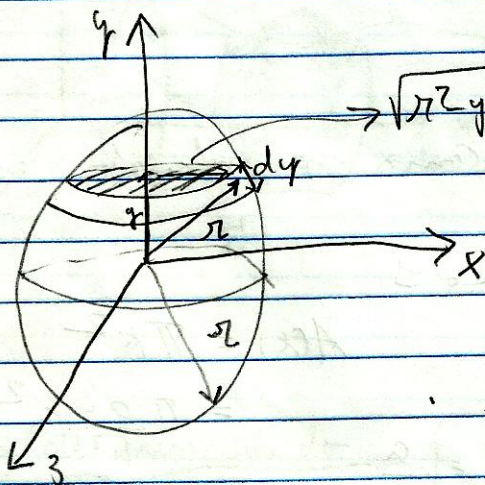 y
√r²y
dy
y
r
x
r
z